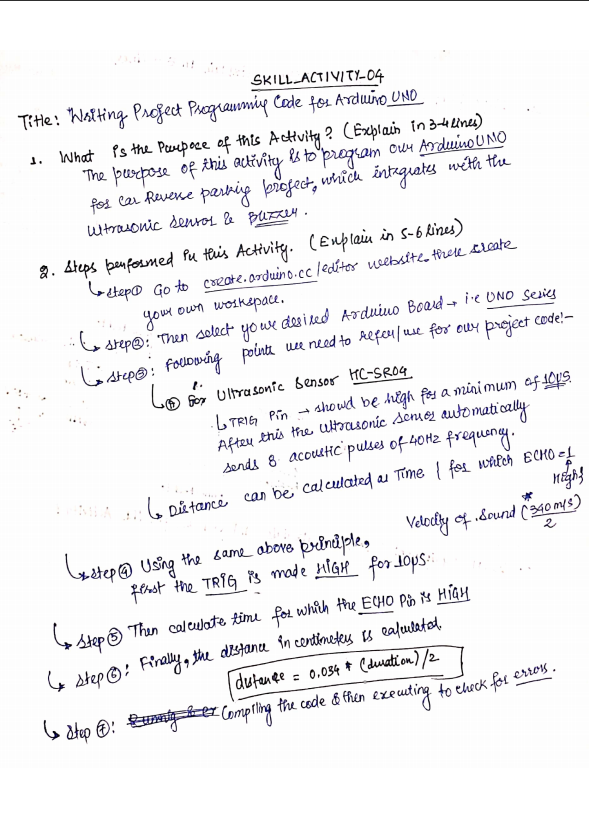 SKILL_ACTIVITY-04
Title: "Writing Project Programming Code for Arduino UNO
1. What is the Purpose of this Activity? (Explain in 3-4 lines)
The purpose of this activity is to program our Arduino UNO
for Car Reverse parking project, which integrates with the
Ultrasonic Sensor & Buzzer.
2. Steps performed in this Activity. (Explain in 5-6 lines)
↳ step① Go to create.arduino.cc/editor website. there create
your own workspace.
↳ step②: Then select your desired Arduino Board → i.e UNO Series
↳ step③: Following points we need to refer/use for our project code:-
↳ ① For Ultrasonic Sensor HC-SR04
↳ TRIG Pin → should be high for a minimum of 10μs.
After this the ultrasonic sensor automatically
sends 8 acoustic pulses of 40Hz frequency.
↳ Distance can be calculated as Time | for which ECHO = 1
High}
Velocity of Sound * (340 m/s)/2
↳ step④ Using the same above principle,
first the TRIG is made HIGH for 10μs.
↳ Step⑤ Then calculate time for which the ECHO Pin is HIGH
↳ step⑥: Finally, the distance in centimeters is calculated.
distance = 0.034 * (duration)/2
↳ Step⑦: Compiling the code & then executing to check for errors.